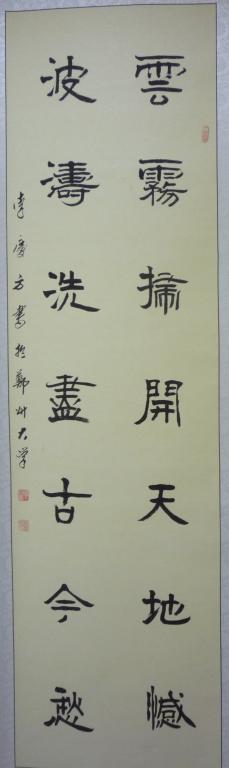 雲霧掃開天地憾
波濤洗盡古今愁
李慶方書於鄭州大学